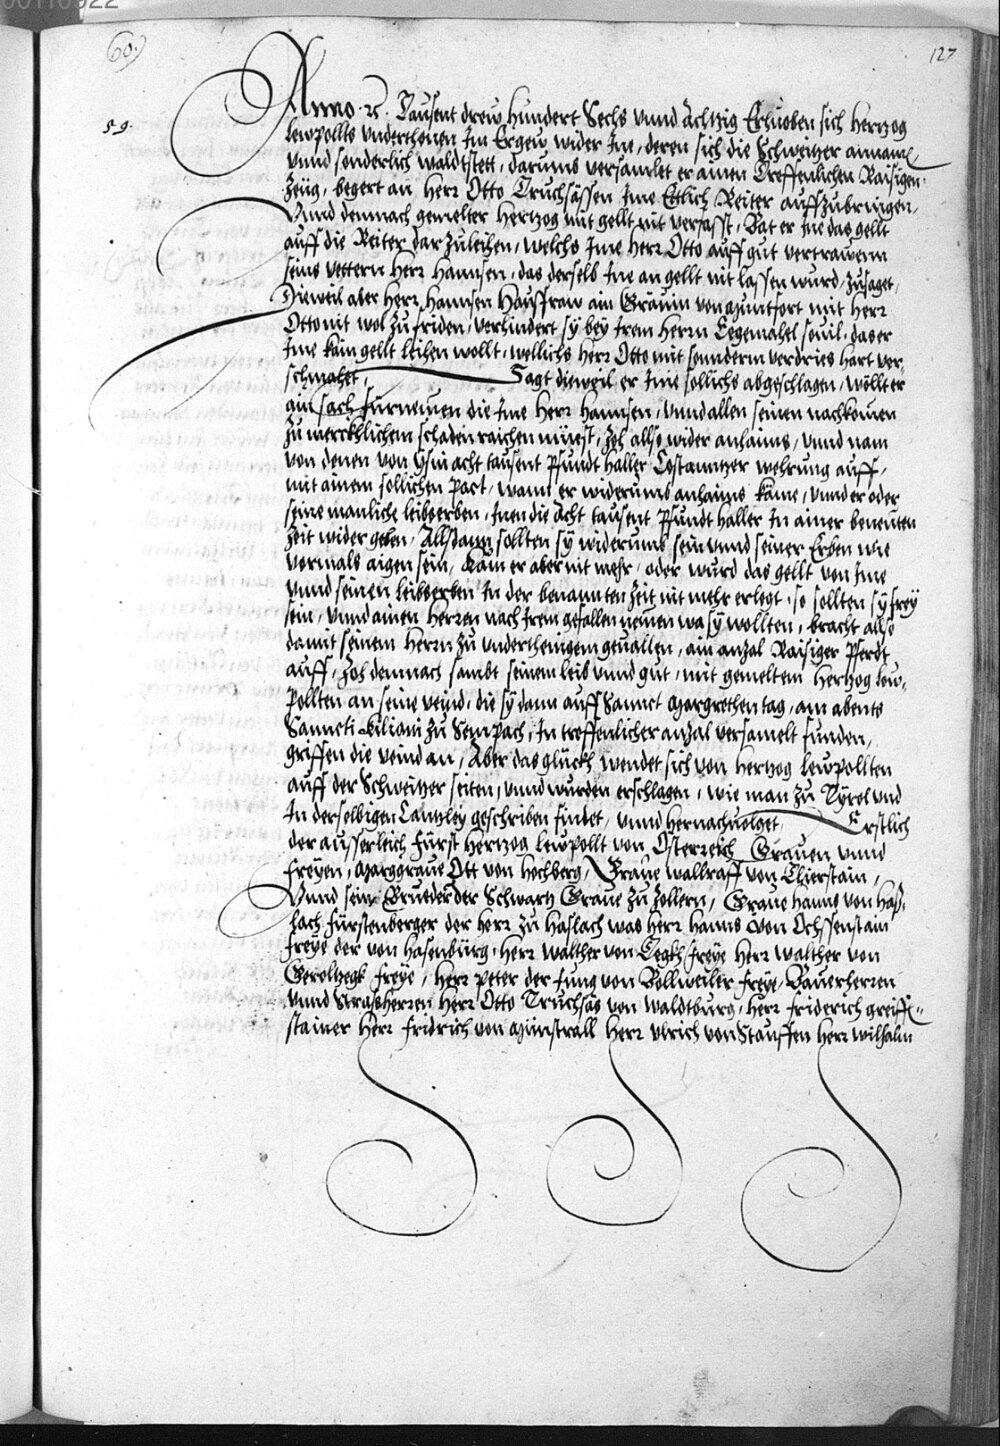 00110922
60.
127
59.
Anno ꝛc. Tausent drew hundert Sechs vnnd Achtzig Erhuoben sich Herzog
Lewpollts vnderthonen Im Ergew wider Ine, deren sich die Schweitzer annamen,
vnnd sonderlich Waldtstett, darumb versamlet er ainen Treffenlichen Raisigen
Zeüg, begert an Herr Otto Truchsässen Ime Etlich Reiter auffzubringen,
Vnnd demnach gemelter Hertzog mit gellt nit verfasst, Bat er Ine das gellt
auff die Reiter dar zuleihen, welchs Ime Herr Otto auff gut vertrawenn
seins vettern Herr Hannsen, das derselb Ine an gellt nit lassen wurd, zusaget,
Dieweil aber Herr Hannsen Haussfraw ain Grävin von Muntfort mit Herr
Otto nit wol zu friden, verhindert sy bey Irem Herrn Eegemahel souil, das er
Ime kain gellt leihen wollt, wellichs Herr Otto mit sonnderm verdries hart ver-
schmahet, Sagt dieweil er Ime sollichs abgeschlagen, wöllt er
ain sach fürnemen die Ime Herr Hannsen, vnnd allen seinen nachkomen
zu merckhlichem schaden raichen müest, Zoh allso wider anhaims, vnnd nam
von denen von Isni acht tausent Pfundt Haller Costanntzer wehrung auff,
mit ainem sollichen pact, wann er widerumb anhaims käme, vnnd er oder
seine manliche leibserben, Inen die acht tausent Pfundt haller In ainer benenten
Zeit wider geben, Allsdann sollten sy widerumb sein vnnd seiner Erben wie
vormals aigen sein, käm er aber nit mehr, oder wurd das gellt von Ime
vnnd seinen leibserben In der benannten Zeit nit mehr erlegt, so sollten sy frey
sein, vnnd ainen Herren nach Irem gefallen nemen wa sy wollten, bracht allso
damit seinem Herrn zu vnderthenigem geuallen, ain anzal Raisiger Pferdt
auff, Zoh demnach sambt seinem leib vnnd gut, mit gemeltem Hertzog Lew-
pollten an seine veind, die sy dann auff Sannct Margrethen tag, am abents
Sanncti Kiliani zu Sempach, In treffenlicher anzal versamelt funden,
griffen die veind an, Aber das glückh wendet sich von Hertzog Lewpollten
auff der Schweitzer seiten, vnnd wurden erschlagen, wie man zu Tyrol vnd
In derselbigen Cantzley geschriben findet, vnnd hernachuolget, Erstlich
der ausserleich Fürst Hertzog Lewpollt von Österreich, Grauen vnnd
Freyen, Marggraue Ott von Hochberg, Graue Wallraff von Thierstain,
Vnnd sein Brueder der Schwartz Graue zu Zollern, Graue Hanns von Haß-
lach Fürstenberger der Herr zu Haslach was Herr Hanns von Ochssenstain
Freye der von Hasenburg, Herr Walther von Degkh Freye Herr Walther von
Geroltzegk Freye, Herr Peter der Jung von Bollweiler Freye, Bauerherren
vnnd Straßherren Herr Otto Truchsäs von Waldtburg, Herr Friderich Greiffe-
stainer Herr Fridrich von Münstrall Herr Vlrich von Stauffen Herr Wilhalm